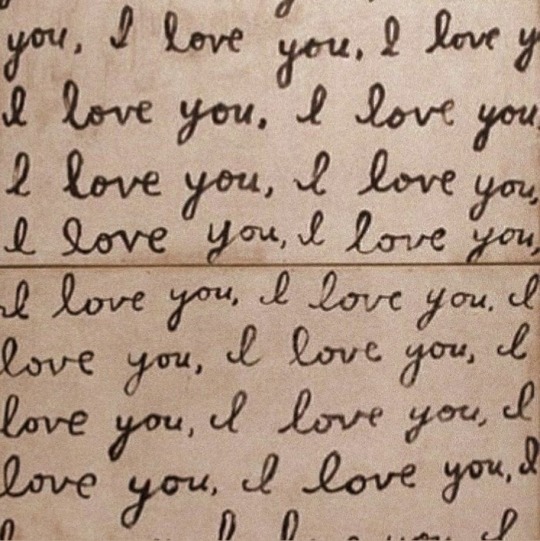 you, I love you, I love y
I love you, I love you,
I love you, I love you,
I love you, I love you,
I love you, I love you. I
love you, I love you, I
love you, I love you, I
love you, I love you, I